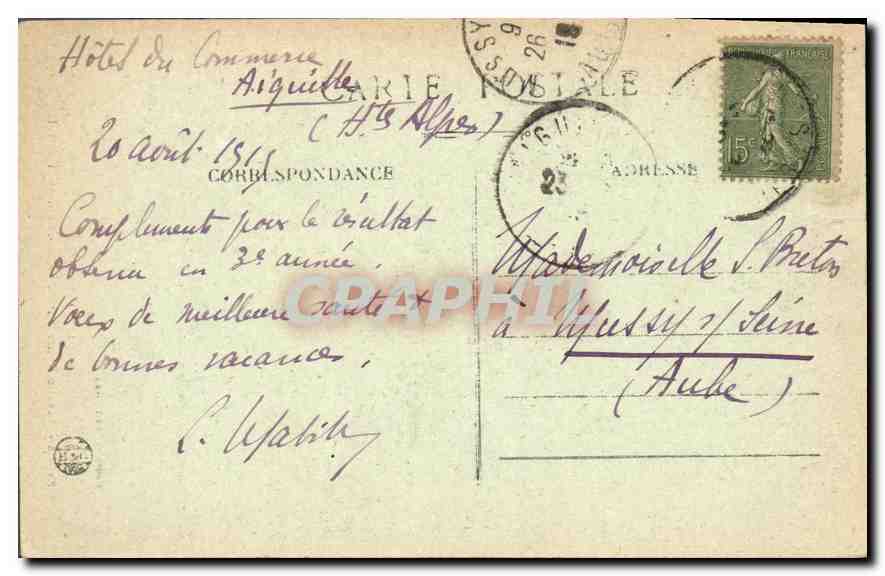 Hôtel du Commerce
Aiguilles
(Htes Alpes)
20 août 1919
CARTE POSTALE
CORRESPONDANCE
Compliments pour le résultat
obtenu en 3e année.
Voeux de meilleure santé &
de bonnes vacances.
ADRESSE
Mademoiselle S. Breton
à Mussy s/ Seine
(Aube)
REPUBLIQUE FRANÇAISE
15c
MUSSY
9
26
23
CPAPHIL